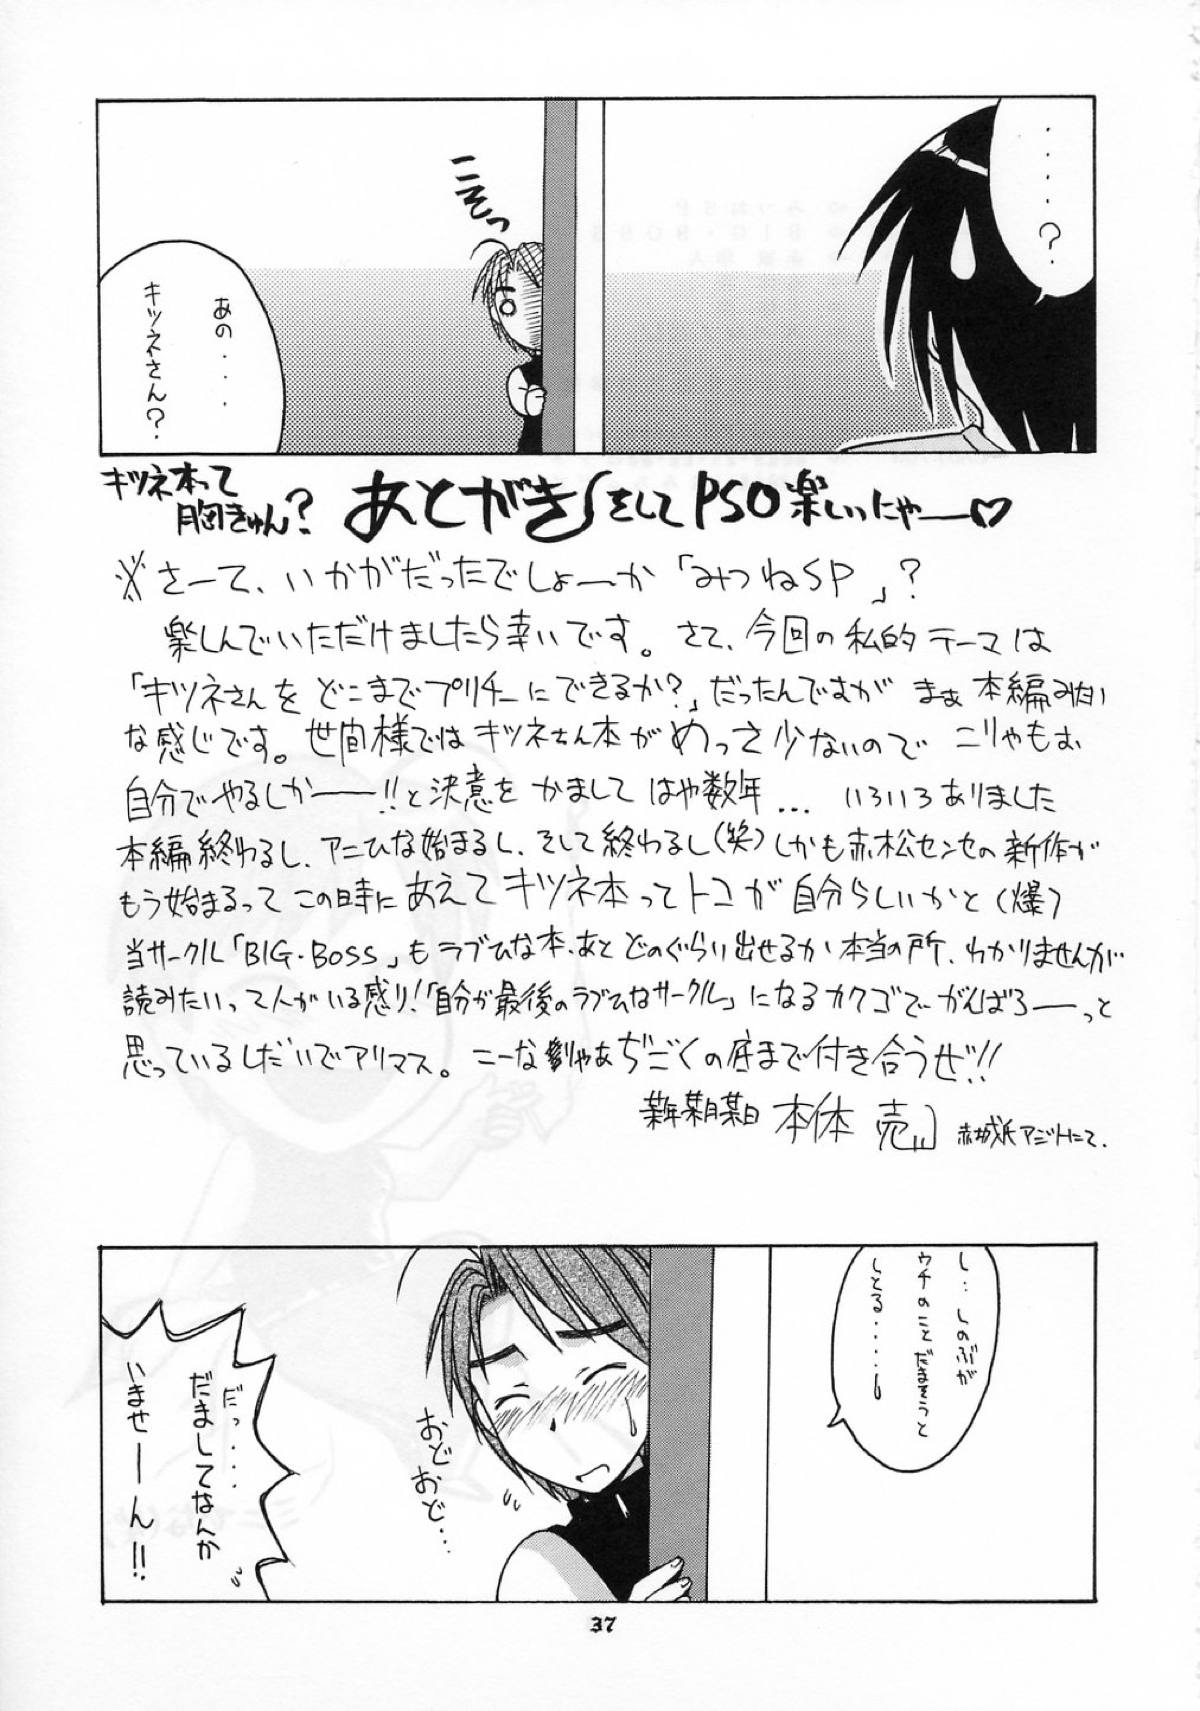 ・・・・・？
こそっ
あの・・・・
キツネさん？
キツネ本って
胸きゅん？
あとがき
そしてPSO楽しいにゃー♡
※さーて、いかがだったでしょーか「みつねSP」？
楽しんでいただけましたら幸いです。さて、今回の私的テーマは
「キツネさんをどこまでプリチーにできるか？」だったんですがまぁ本編みたい
な感じです。世間様ではキツネさん本がめっさ少ないのでこりゃもぉ
自分でやるしかーー!!と決意をかましてはや数年...いろいろありました
本編終わるし、アニひな始まるし、そして終わるし(笑)しかも赤松センセの新作が
もう始まるってこの時にあえてキツネ本ってトコが自分らしいかと(爆)
当サークル「BIG・BOSS」もラブひな本、あとどのぐらい出せるか本当の所、わかりませんが
読みたいって人がいる感り!「自分が最後のラブひなサークル」になるカクゴでがんばろーーっと
思っているしだいでアリマス。こーなりゃあぢごくの底まで付き合うぜ!!
某年某月某日 本体 売 赤城氏アジトにて.
し・・しのぶが
ウチのことだまそうと
しとる・・・・
おど
おど・・・
だっ・・・・
だましてなんか
いませーん!!
37